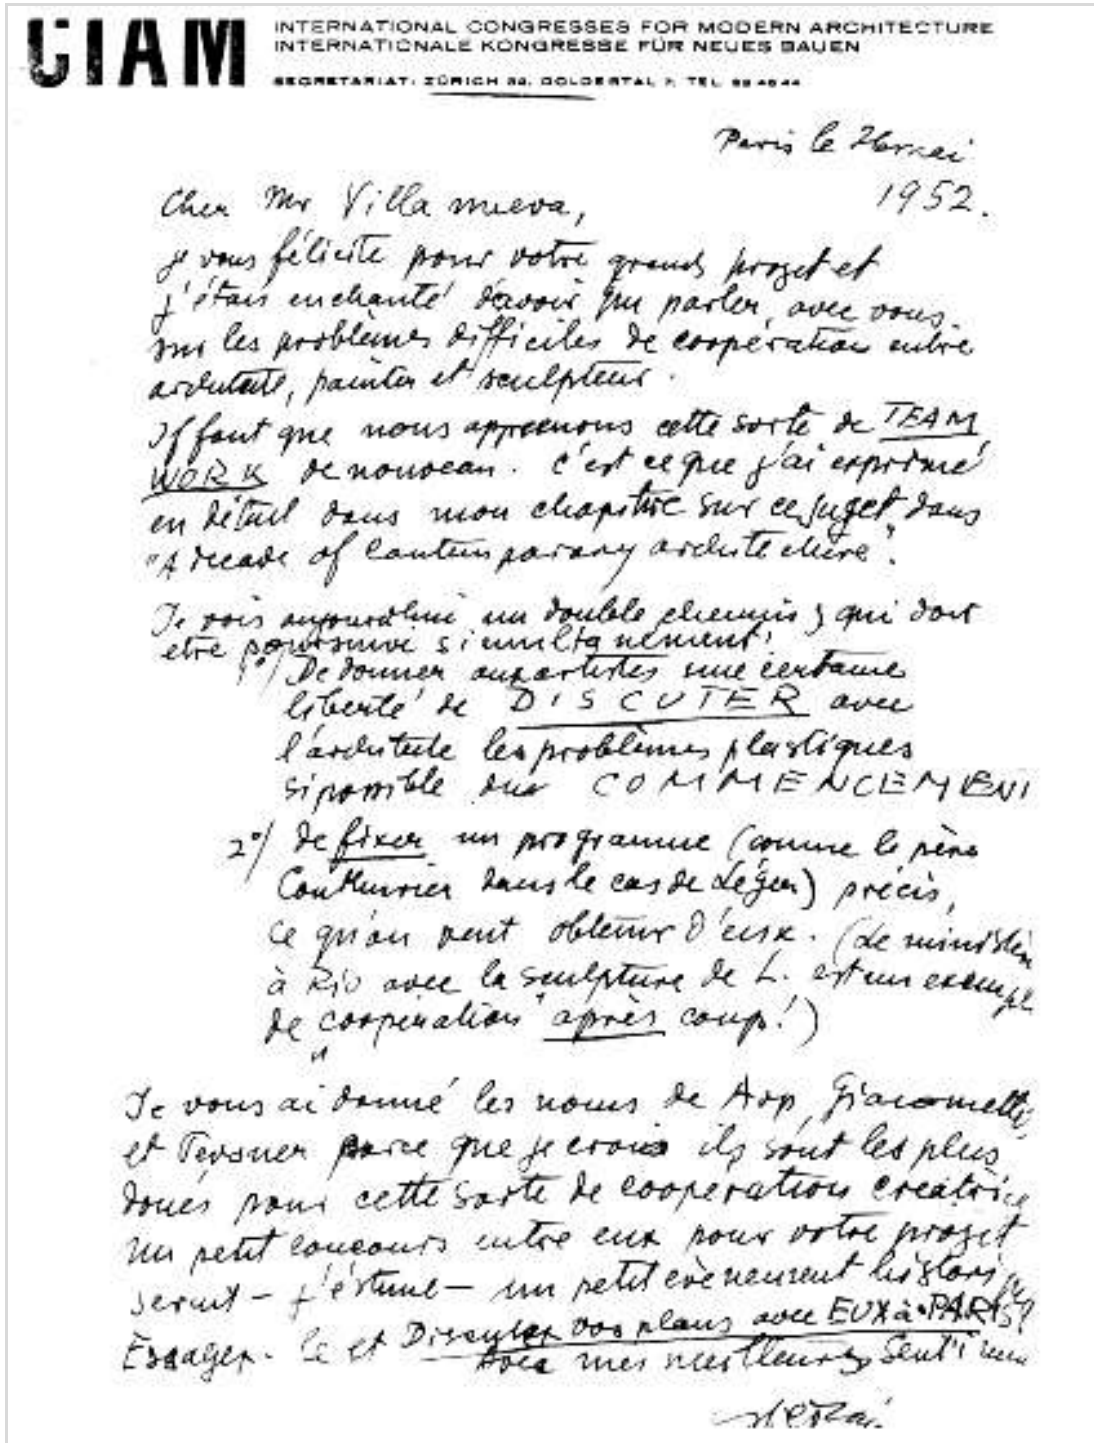 CIAM
INTERNATIONAL CONGRESSES FOR MODERN ARCHITECTURE
INTERNATIONALE KONGRESSE FÜR NEUES BAUEN
SECRETARIAT: ZÜRICH 32, DOLDERTAL 7, TEL.
Paris le mai
1952.
Cher Mr Villanueva,
je vous félicite pour votre grand projet et
j'étais enchanté d'avoir pu parler, avec vous
sur les problèmes difficiles de coopération entre
architecte, peintre et sculpteur.
Il faut que nous apprenons cette sorte de TEAM
WORK de nouveau. C'est ce que j'ai exprimé
en détail dans mon chapitre sur ce sujet dans
"A decade of Contemporary architecture".
Je vois aujourd'hui un double chemin, qui doit
etre poursuivi
1°/ De donner aux artistes une certaine
liberté de DISCUTER avec
l'architecte les problèmes plastiques
si possible au COMMENCEMENT
2°/ de fixer un programme (comme le père
Couturier dans le cas de Léger) précis,
ce qu'on veut obtenir d'eux. (Le ministère
à Rio avec la sculpture de L. est un exemple
de "coopération" après coup!)
Je vous ai donné les noms de Arp, Giacometti,
et Pevsner parce que je crois ils sont les plus
doués pour cette sorte de coopération créatrice
Un petit concours entre eux pour votre projet
serait – j'estime – un petit évènement historique
Essayez-le et Discutez vos plans avec EUX à PARIS!
Avec mes meilleures